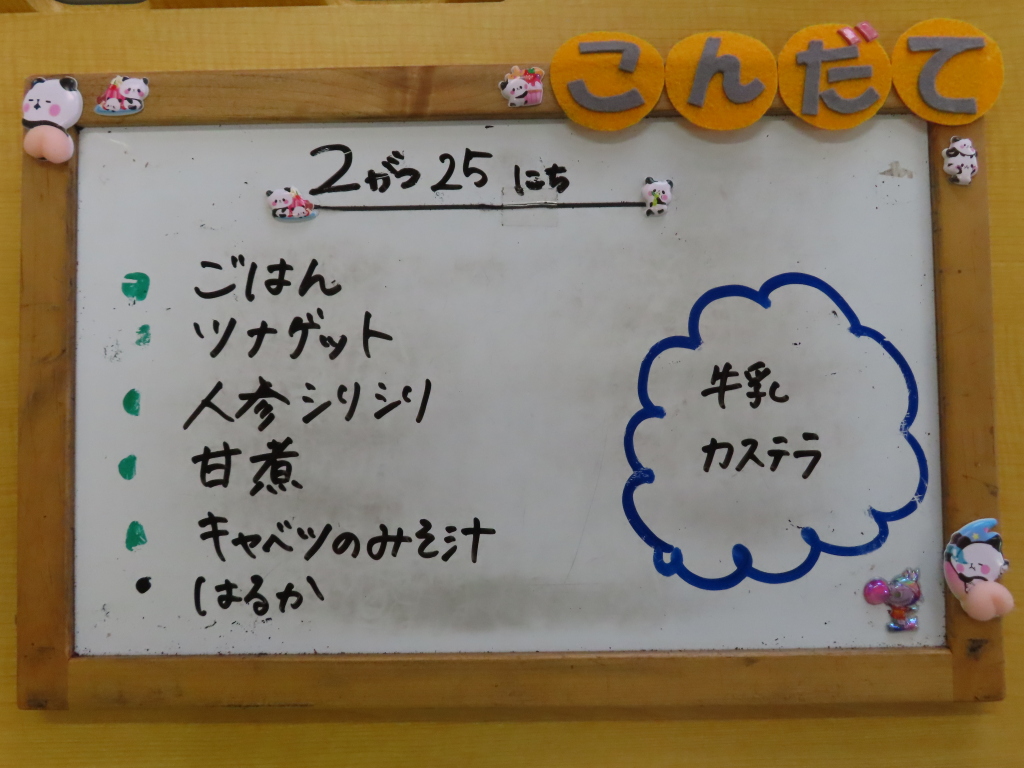 こんだて
2がつ25にち
ごはん
ツナゲット
人参シリシリ
甘煮
キャベツのみそ汁
はるか
牛乳
カステラ